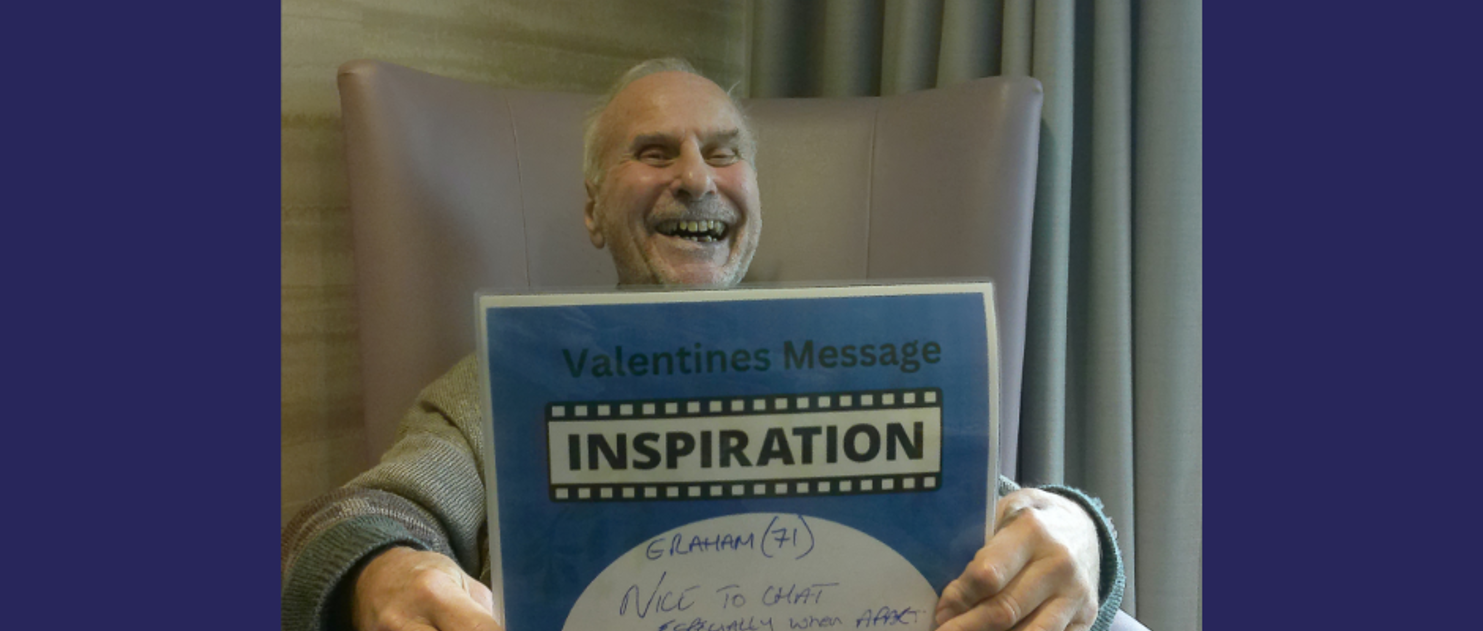 Valentines Message
INSPIRATION
GRAHAM (71)
NICE TO CHAT
ESPECIALLY WHEN APART